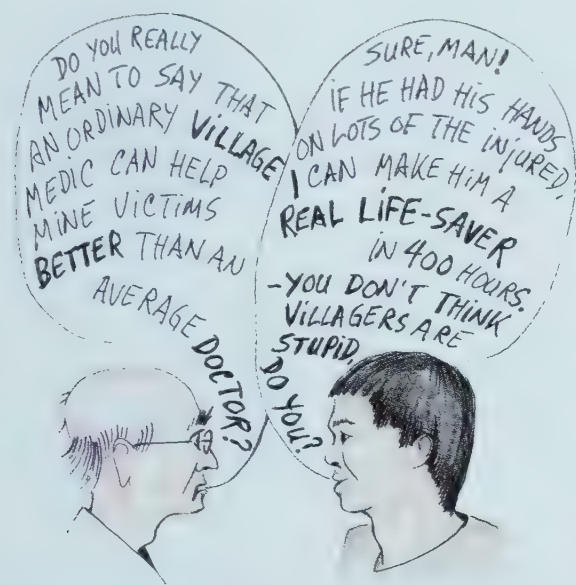 DO YOU REALLY
MEAN TO SAY THAT
AN ORDINARY VILLAGE
MEDIC CAN HELP
MINE VICTIMS
BETTER THAN AN
AVERAGE DOCTOR?
SURE, MAN!
IF HE HAD HIS HANDS
ON LOTS OF THE INJURED,
I CAN MAKE HIM A
REAL LIFE-SAVER
IN 400 HOURS.
-YOU DON'T THINK
VILLAGERS ARE
STUPID,
DO YOU?